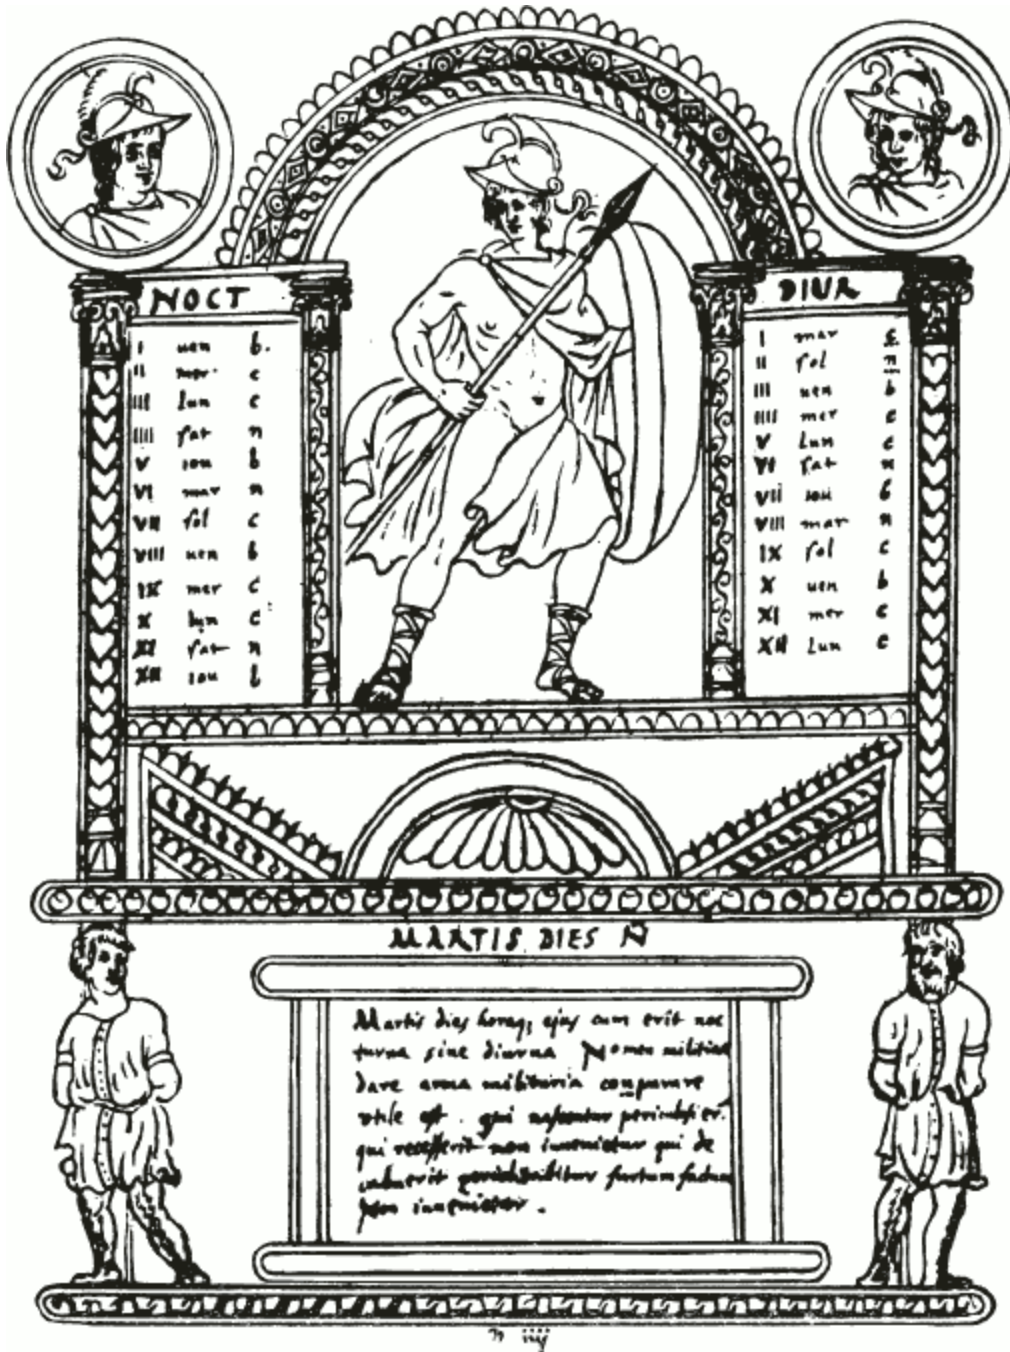 NOCT
I uen b.
II mer c
III lun c
IIII sat n
V iou b
VI mar n
VII sol c
VIII uen b
IX mer c
X lun c
XI sat n
XII iou b
DIUR
I mar
II sol n
III uen b
IIII mer c
V Lun c
VI sat n
VII iou b
VIII mar n
IX sol c
X uen b
XI mer c
XII Lun c
MARTIS DIES N
Martis dies horaq; ejus cum erit noc
turna sine diurna Nomen militiae
dare arma militaria conparare
utile est . qui nascentur
qui recesserit non invenietur qui de
furtum factum
Non invenietur .
n iiij